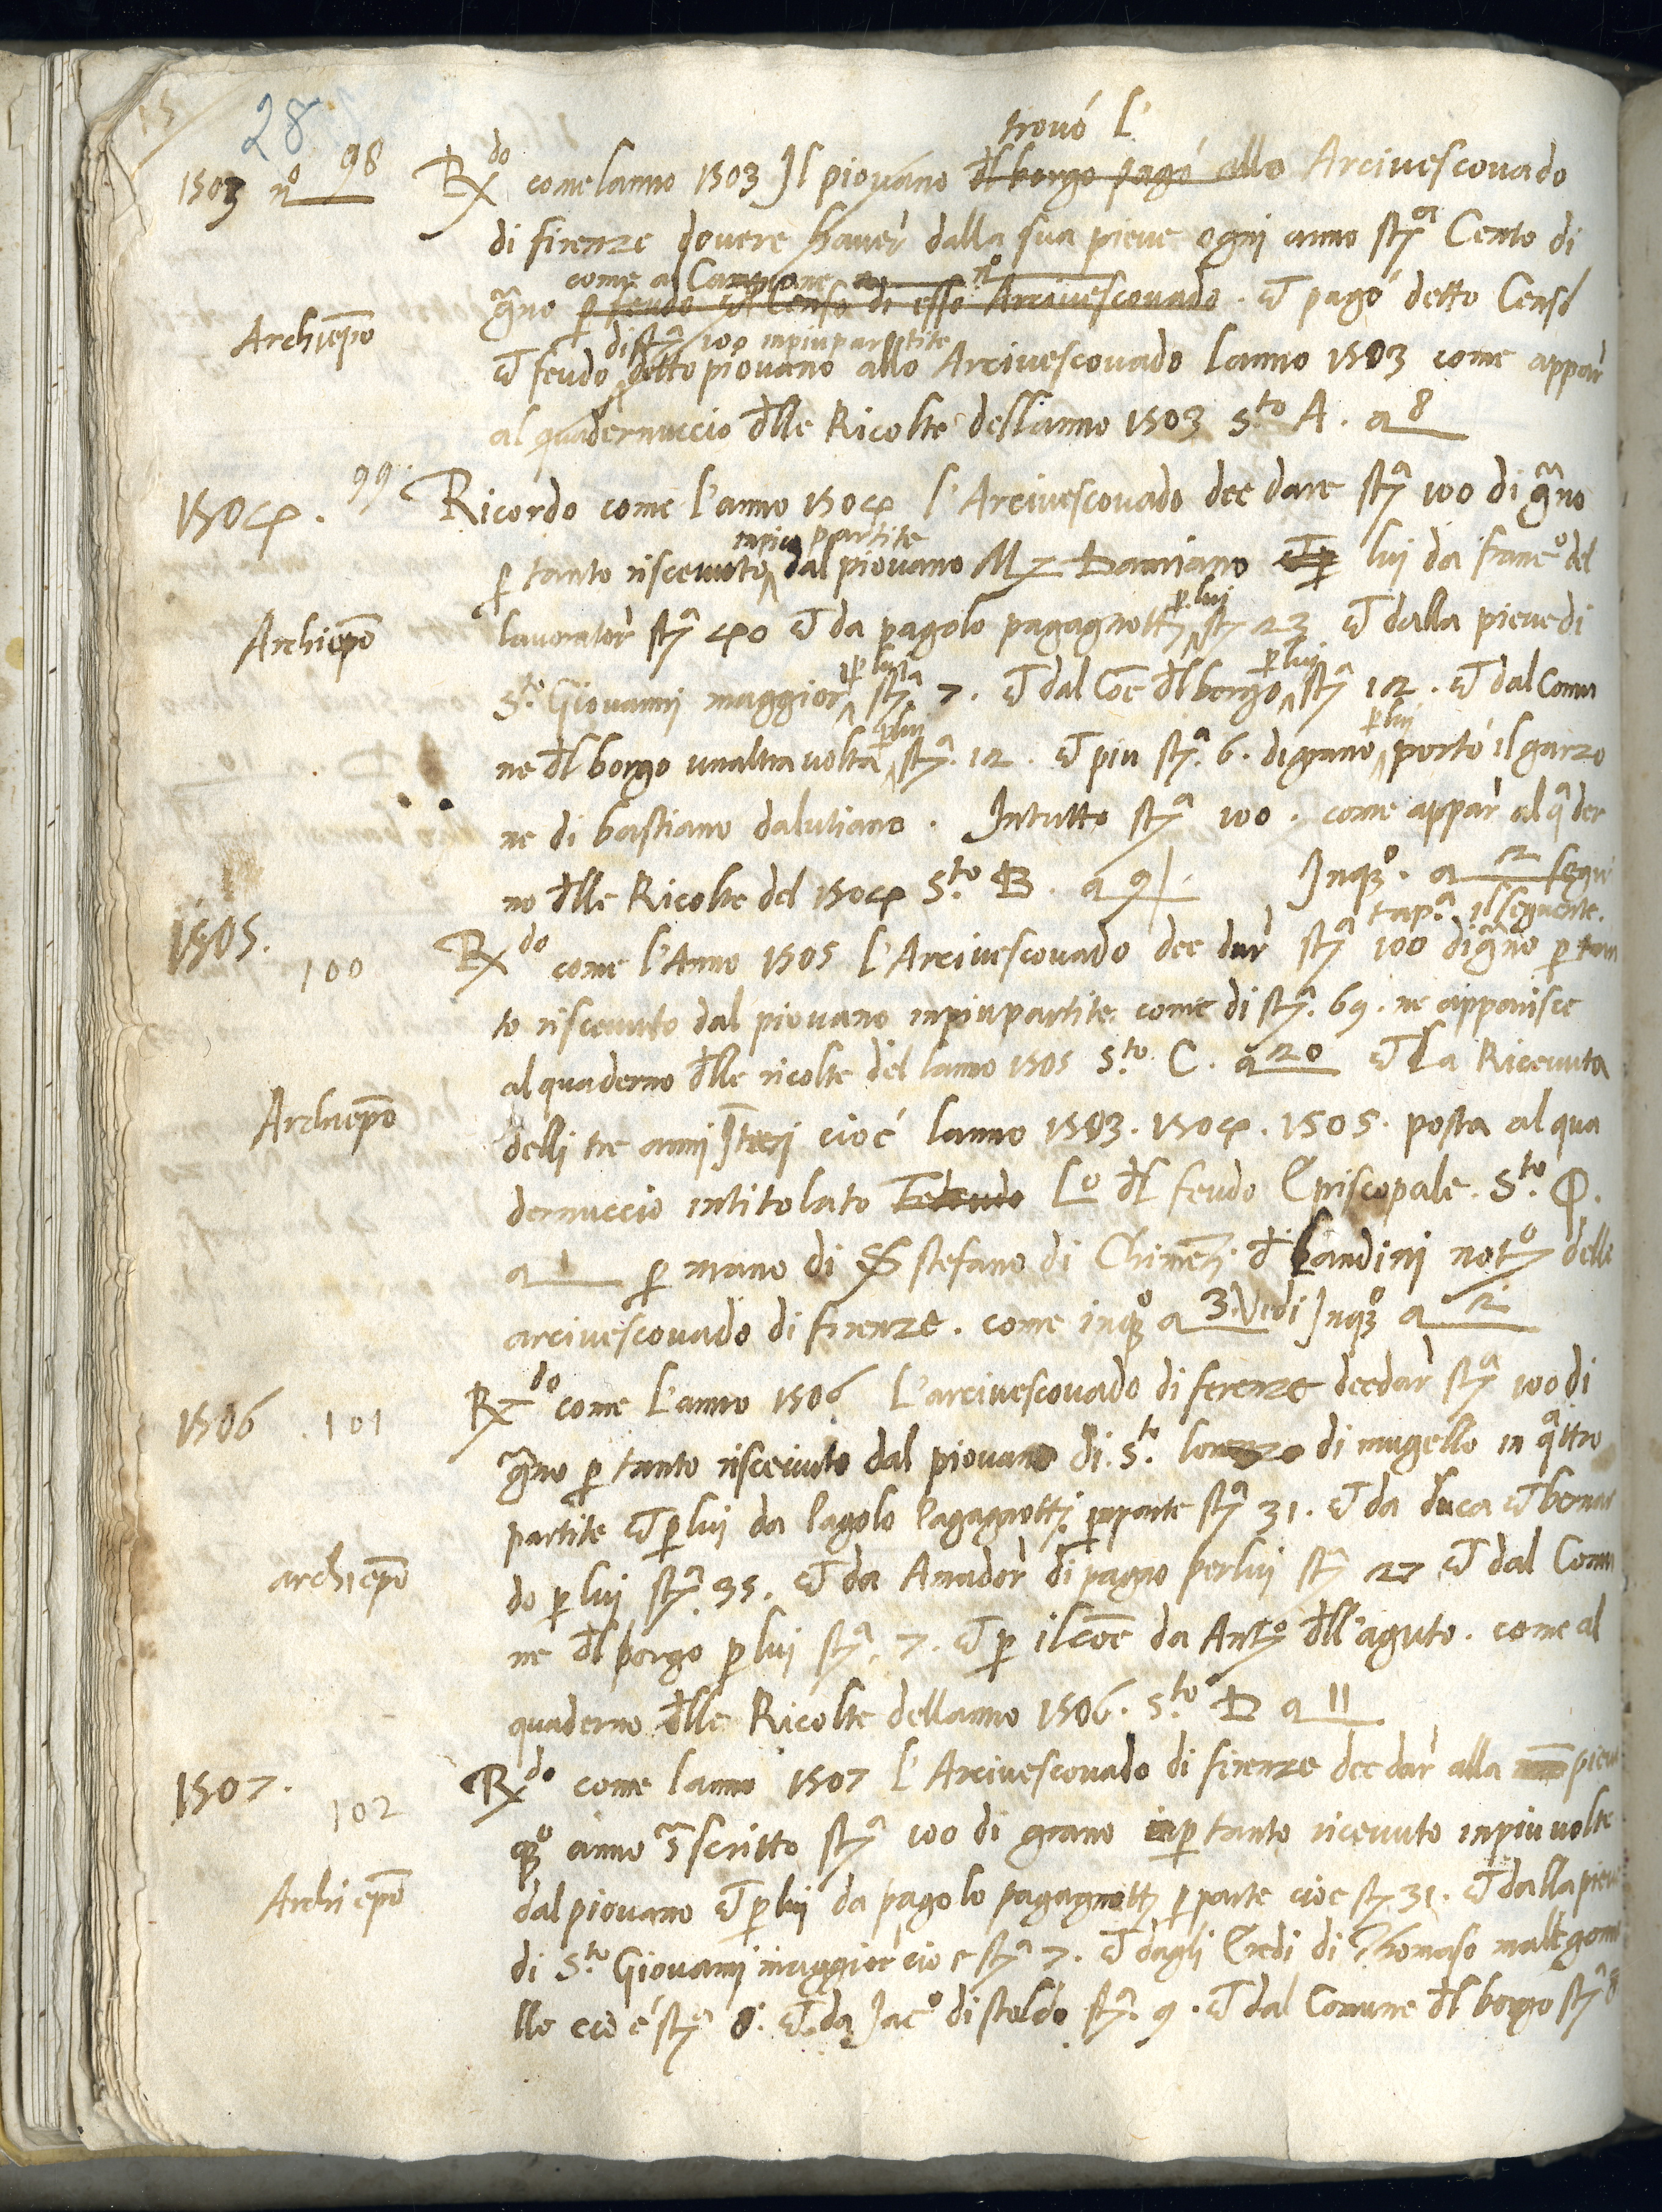 28
trovò l'
1503 nº 98 Rdo come lanno 1503 Il piovano dl borgo pagò allo Arcivescovado
di firenze dovere haver dalla sua pieve ogni anno stª Cento di
come al Campione a nº
gno p feudo et Censo di esso Arcivescovado. et pagò detto Censo
di stª 100 inpiu partite
Archiepo et feudo detto piovano allo Arcivescovado lanno 1503 come appar
al quadernuccio dlle Ricolte dell'anno 1503 Sto A. a 8
1504. 99 Ricordo come l'anno 1504 l'Arcivescovado dee dare stª 100 di gno
inpiu partite
p tanto riscevuto dal piovano Mz Damiano et p lui da franº del
p lui
Archiepo lavorator stª 40 et da pagolo pagagnotti stª 23 et dalla pieve di
p lui p lui
Sto Giovanni maggior stª 7. et dal Coe dl borgo stª 12. et dal Comu
p lui p lui
ne dl borgo unaltra volta stª. 12. et piu stª. 6. di grano portò il garzo
ne di bastiano dalutiano. Intutto stª 100. come appar al qder
no dlle Ricolte del 1504 Sto B. a 9 Inqº. a 2 segui
rapª. il seguente.
1505. 100 Rdo come l'Anno 1505 l'Arcivescovado dee dar stª 100 di gno p tan
to riscevuto dal piovano inpiu partite come di stª. 69. ne apparisce
al quaderno dlle ricolte del lanno 1505 Sto C. a 20 et la Ricevuta
Archiepo delli tre anni Iteri cioè lanno 1503. 1504. 1505. posta al qua
dernuccio intitolato Lº dl feudo Episcopale. Sto Q.
a 1 p mano di S stefano di Chimeti d Landini notº dello
arcivescovado di firenze. come inqº a 3. Vedi Inqº a 2
1506 . 101 Rdo come l'anno 1506 L'arcivescovado di firenze dee dar stª 100 di
gno p tanto riscevuto dal piovano di Sto lorenzo di mugello in qttro
partite et p lui da Pagolo Pagagnotti p parte stª 31. et da duca et bernar
archiepo do p lui stª. 35. et da Amador di pagno per lui stª 27 et dal Comu
ne dl borgo p lui stª. 7. et p il coe da Antº dll'aguto. come al
quaderno dlle Ricolte dellanno 1506. Sto D a 11
1507. 102 Rdo come lanno 1507 l'Arcivescovado di firenze dee dar alla pieve
qº anno sscritto stª 100 di grano p tanto ricevuto inpiu volte
Archiepo dal piovano et p lui da pagolo pagagnotti p parte cioe stª 31. et dalla pieve
di Sto Giovanni maggior cioe stª 7. et dagli Eredi di Thomaso malegone
lle cioè stª 8. et da Jacº di stoldo stª. 9. et dal Comune dl borgo stª 8